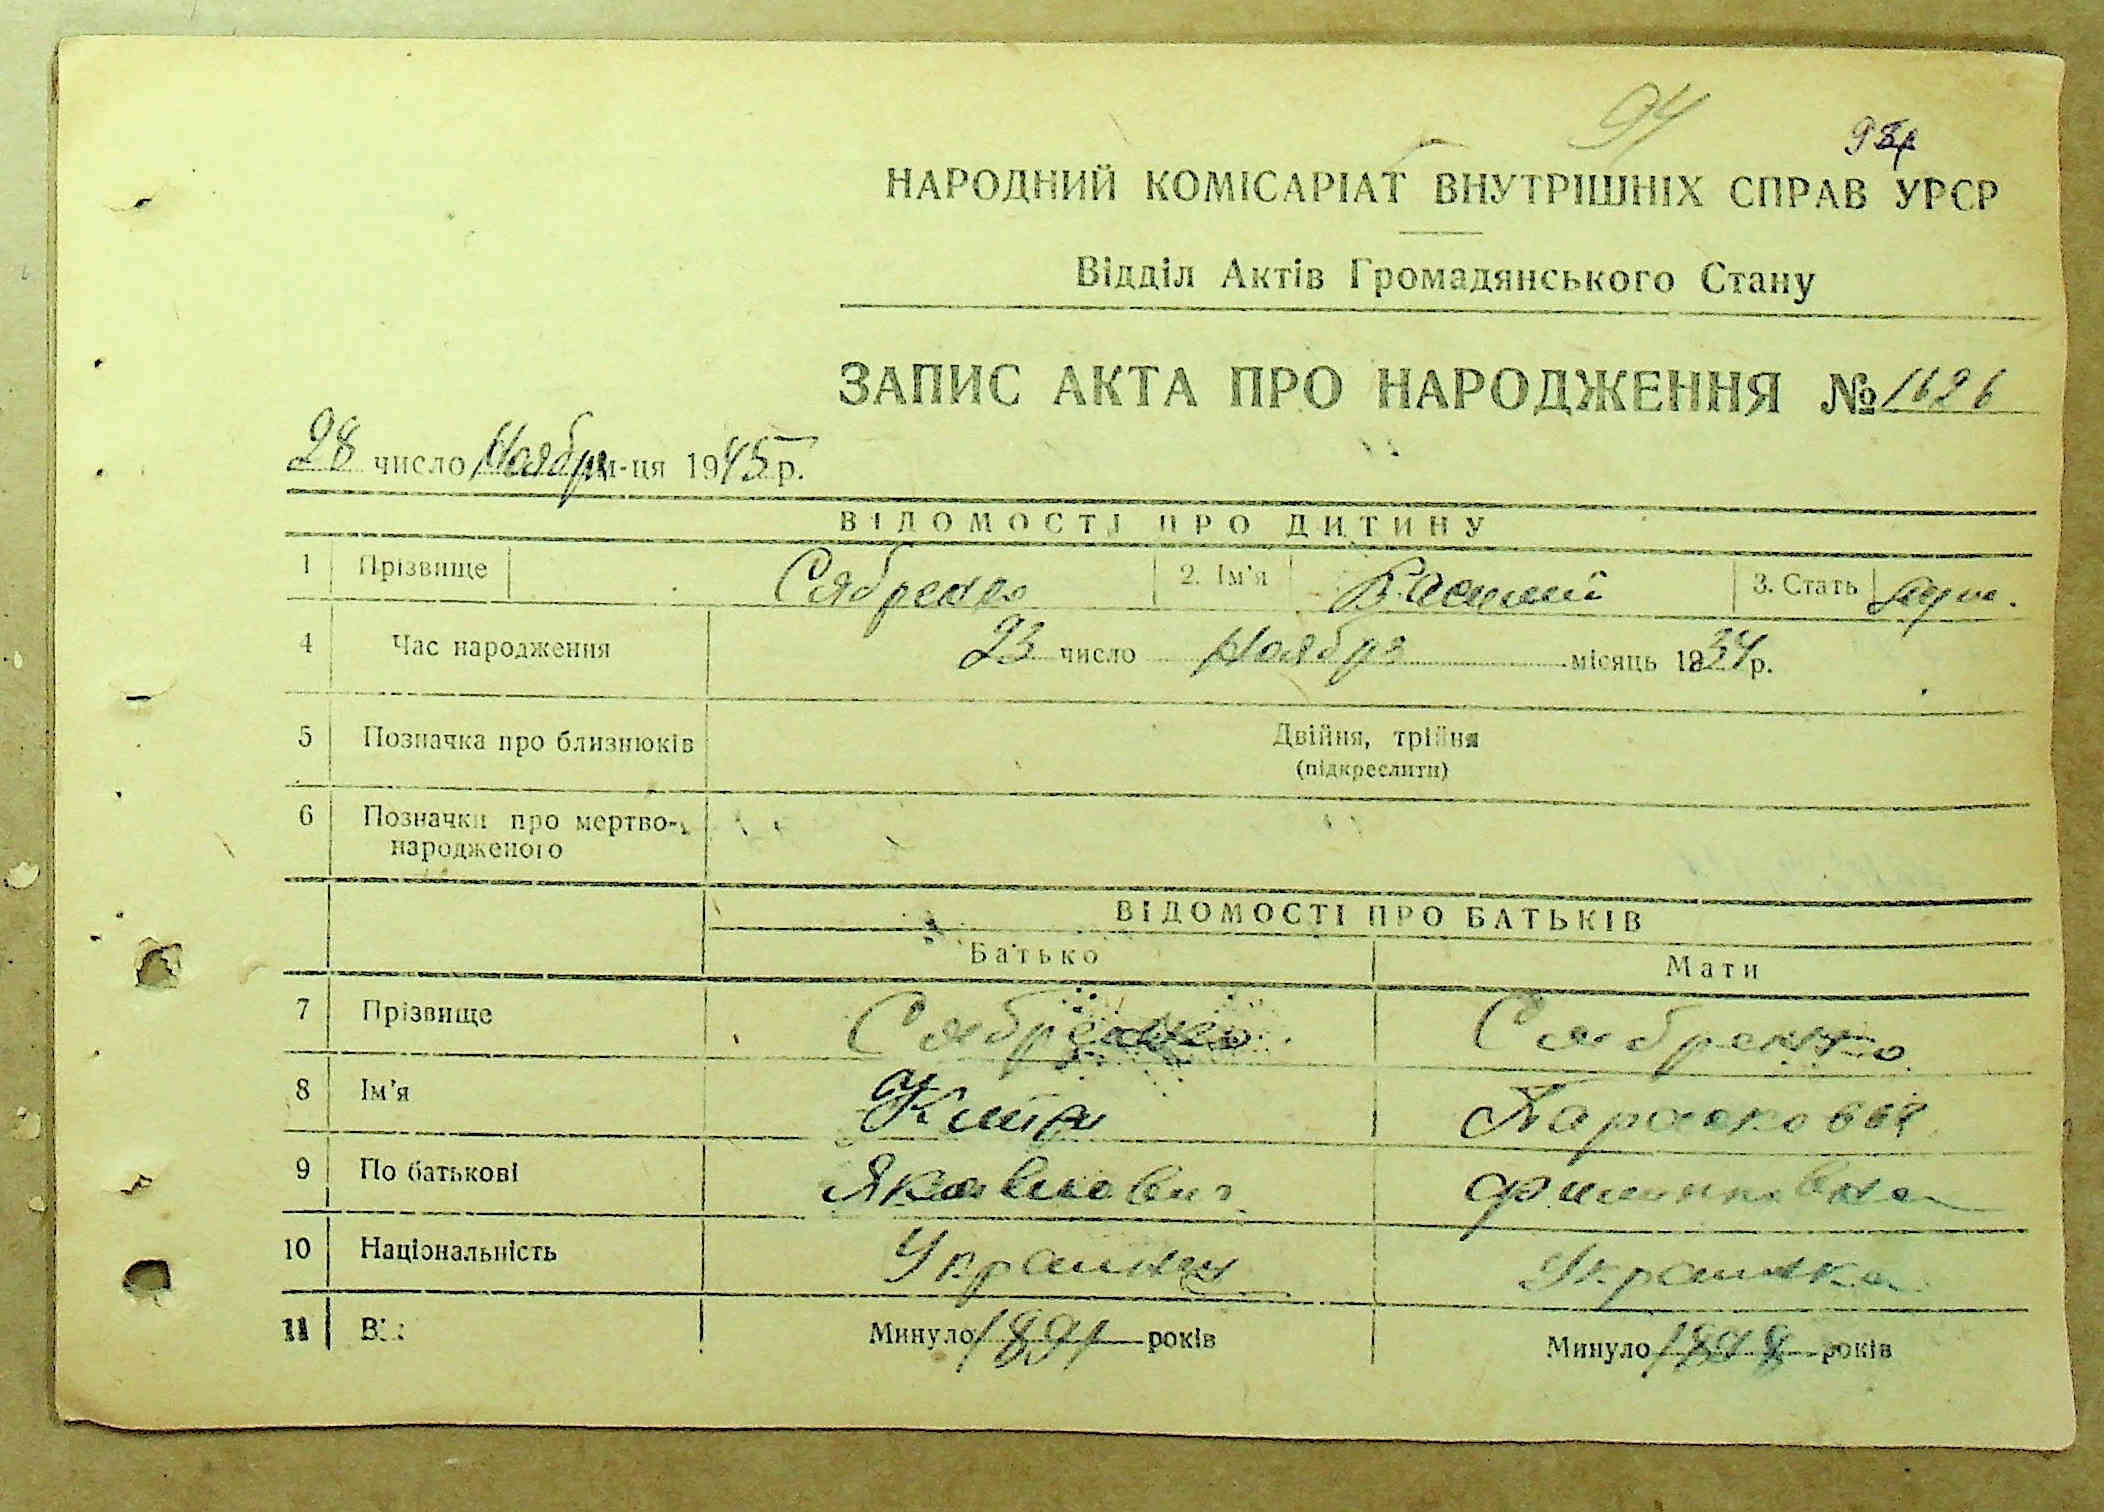 94
НАРОДНИЙ КОМІСАРІАТ ВНУТРІШНІХ СПРАВ УРСР
Відділ Актів Громадянського Стану
ЗАПИС АКТА ПРО НАРОДЖЕННЯ № 1626
28 число Ноября м-ця 1945 р.
ВІДОМОСТІ ПРО ДИТИНУ
1 Прізвище Сябренко 2. Ім'я Василий 3. Стать муж.
4 Час народження 23 число Ноября місяць 1934 р.
5 Позначка про близнюків Двійня, трійня
(підкреслити)
6 Позначки про мертво-
народженого
ВІДОМОСТІ ПРО БАТЬКІВ
Батько Мати
7 Прізвище Сябренко Сябренко
8 Ім'я Парасковья
9 По батькові Яковлевич Филипповна
10 Національність Украинец Украинка
11 Вік Минуло 1891 років Минуло 1898 років